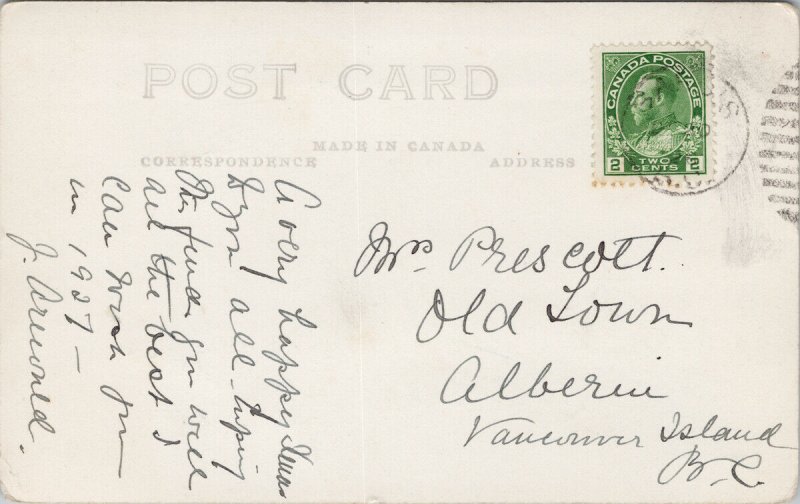 POST CARD
MADE IN CANADA
CORRESPONDENCE
ADDRESS
CANADA POSTAGE
2 TWO CENTS 2
A very happy Xmas
to you all - hoping
this finds you well
and the best I
can wish you
in 1927 -
J.
Mrs Prescott.
Old Town
Alberni
Vancouver Island
B.C.